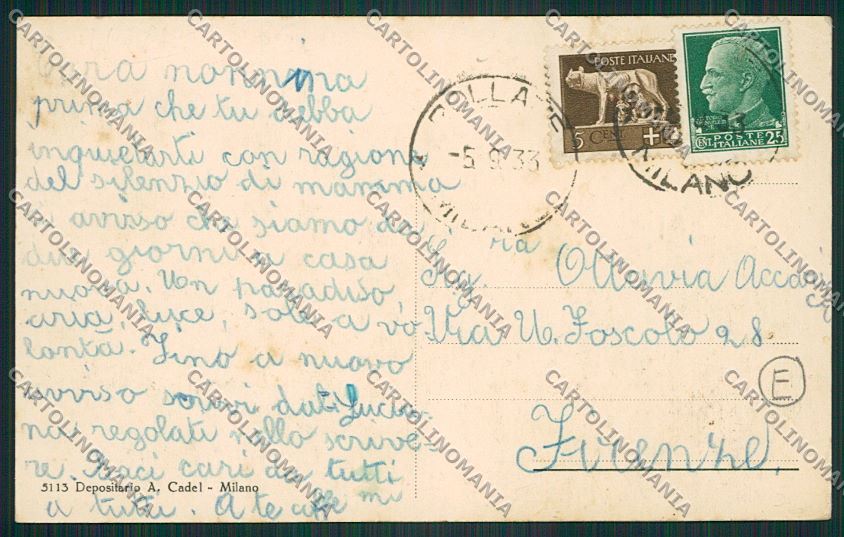 Cara nonnina
prima che tu debba
inquietarti con ragione
del silenzio di mamma
ti avviso che siamo da
due giorni a casa
nuova. Un paradiso,
aria, luce, sole a vo
lontà. Fino a nuovo
avviso scrivi dal Lucia-
na regolati nello scrive-
re. Baci cari da tutti
a tutti. A te
mi
5113 Depositario A. Cadel - Milano
POSTE ITALIANE
5 CENT
CENT. POSTE ITALIANE 25
-5.9.33
MILANO
MILANO
Sig.ra Ottavia
Via U. Foscolo 28
Firenze
E
CARTOLINOMANIA